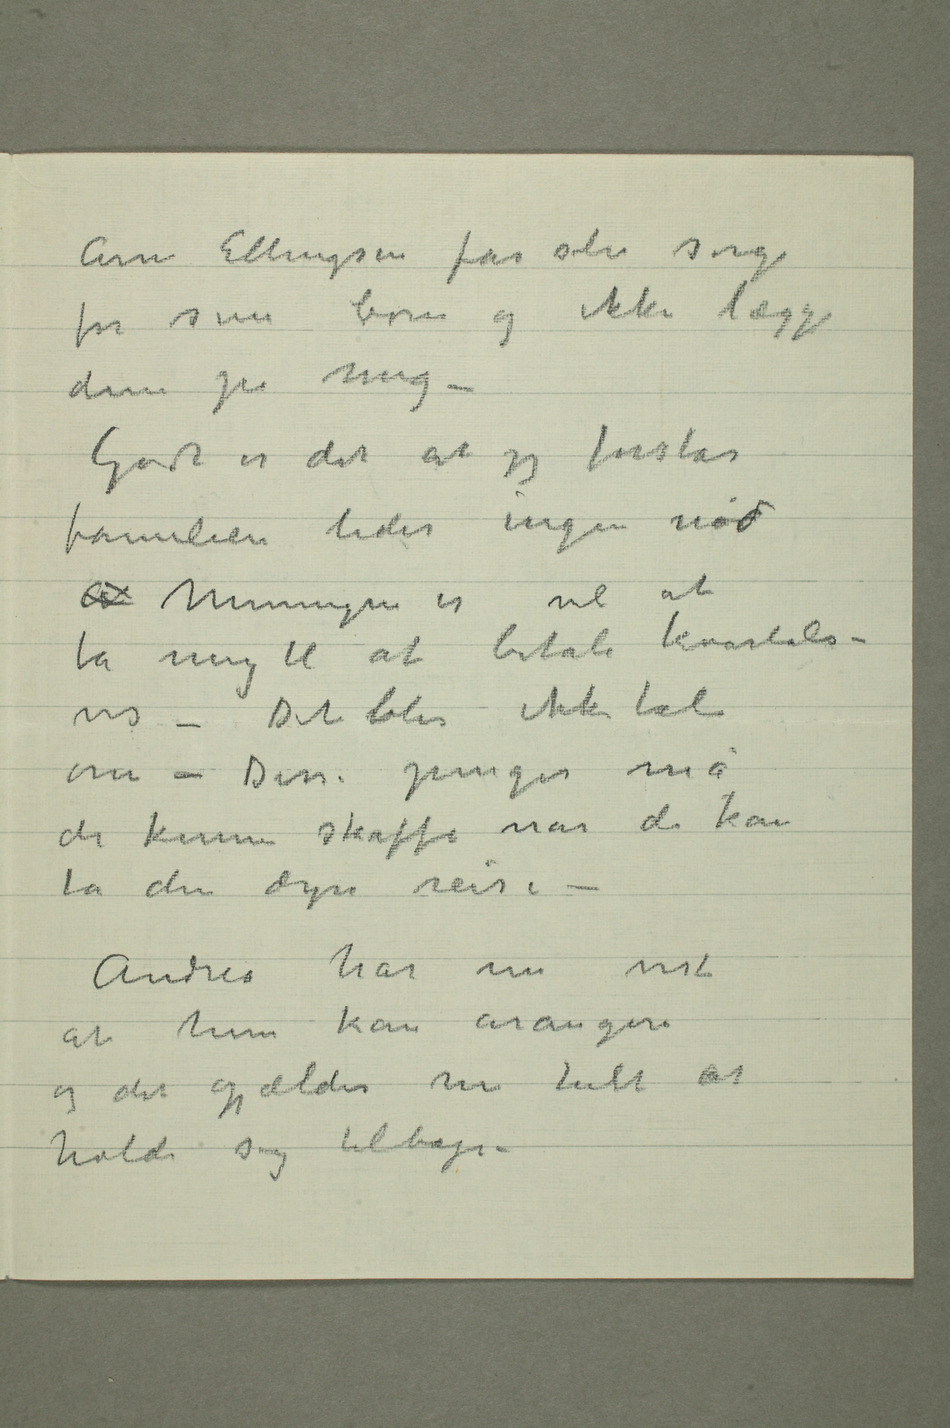 Arne Ellingsen får selv sørge
for sine børn og ikke lægge
dem på mig –
Godt er det at jeg forstår
familien lider ingen nød
Meningen er vel at
ta mig til at betale kvartals–
vis – Det blir ikke tale
om – Disse penger må
de kunne skaffe når de kan
ta den dyre reise –
Andrea har nu vist
at hun kan arangere
og det gjælder nu helt at
holde sig tilbage –